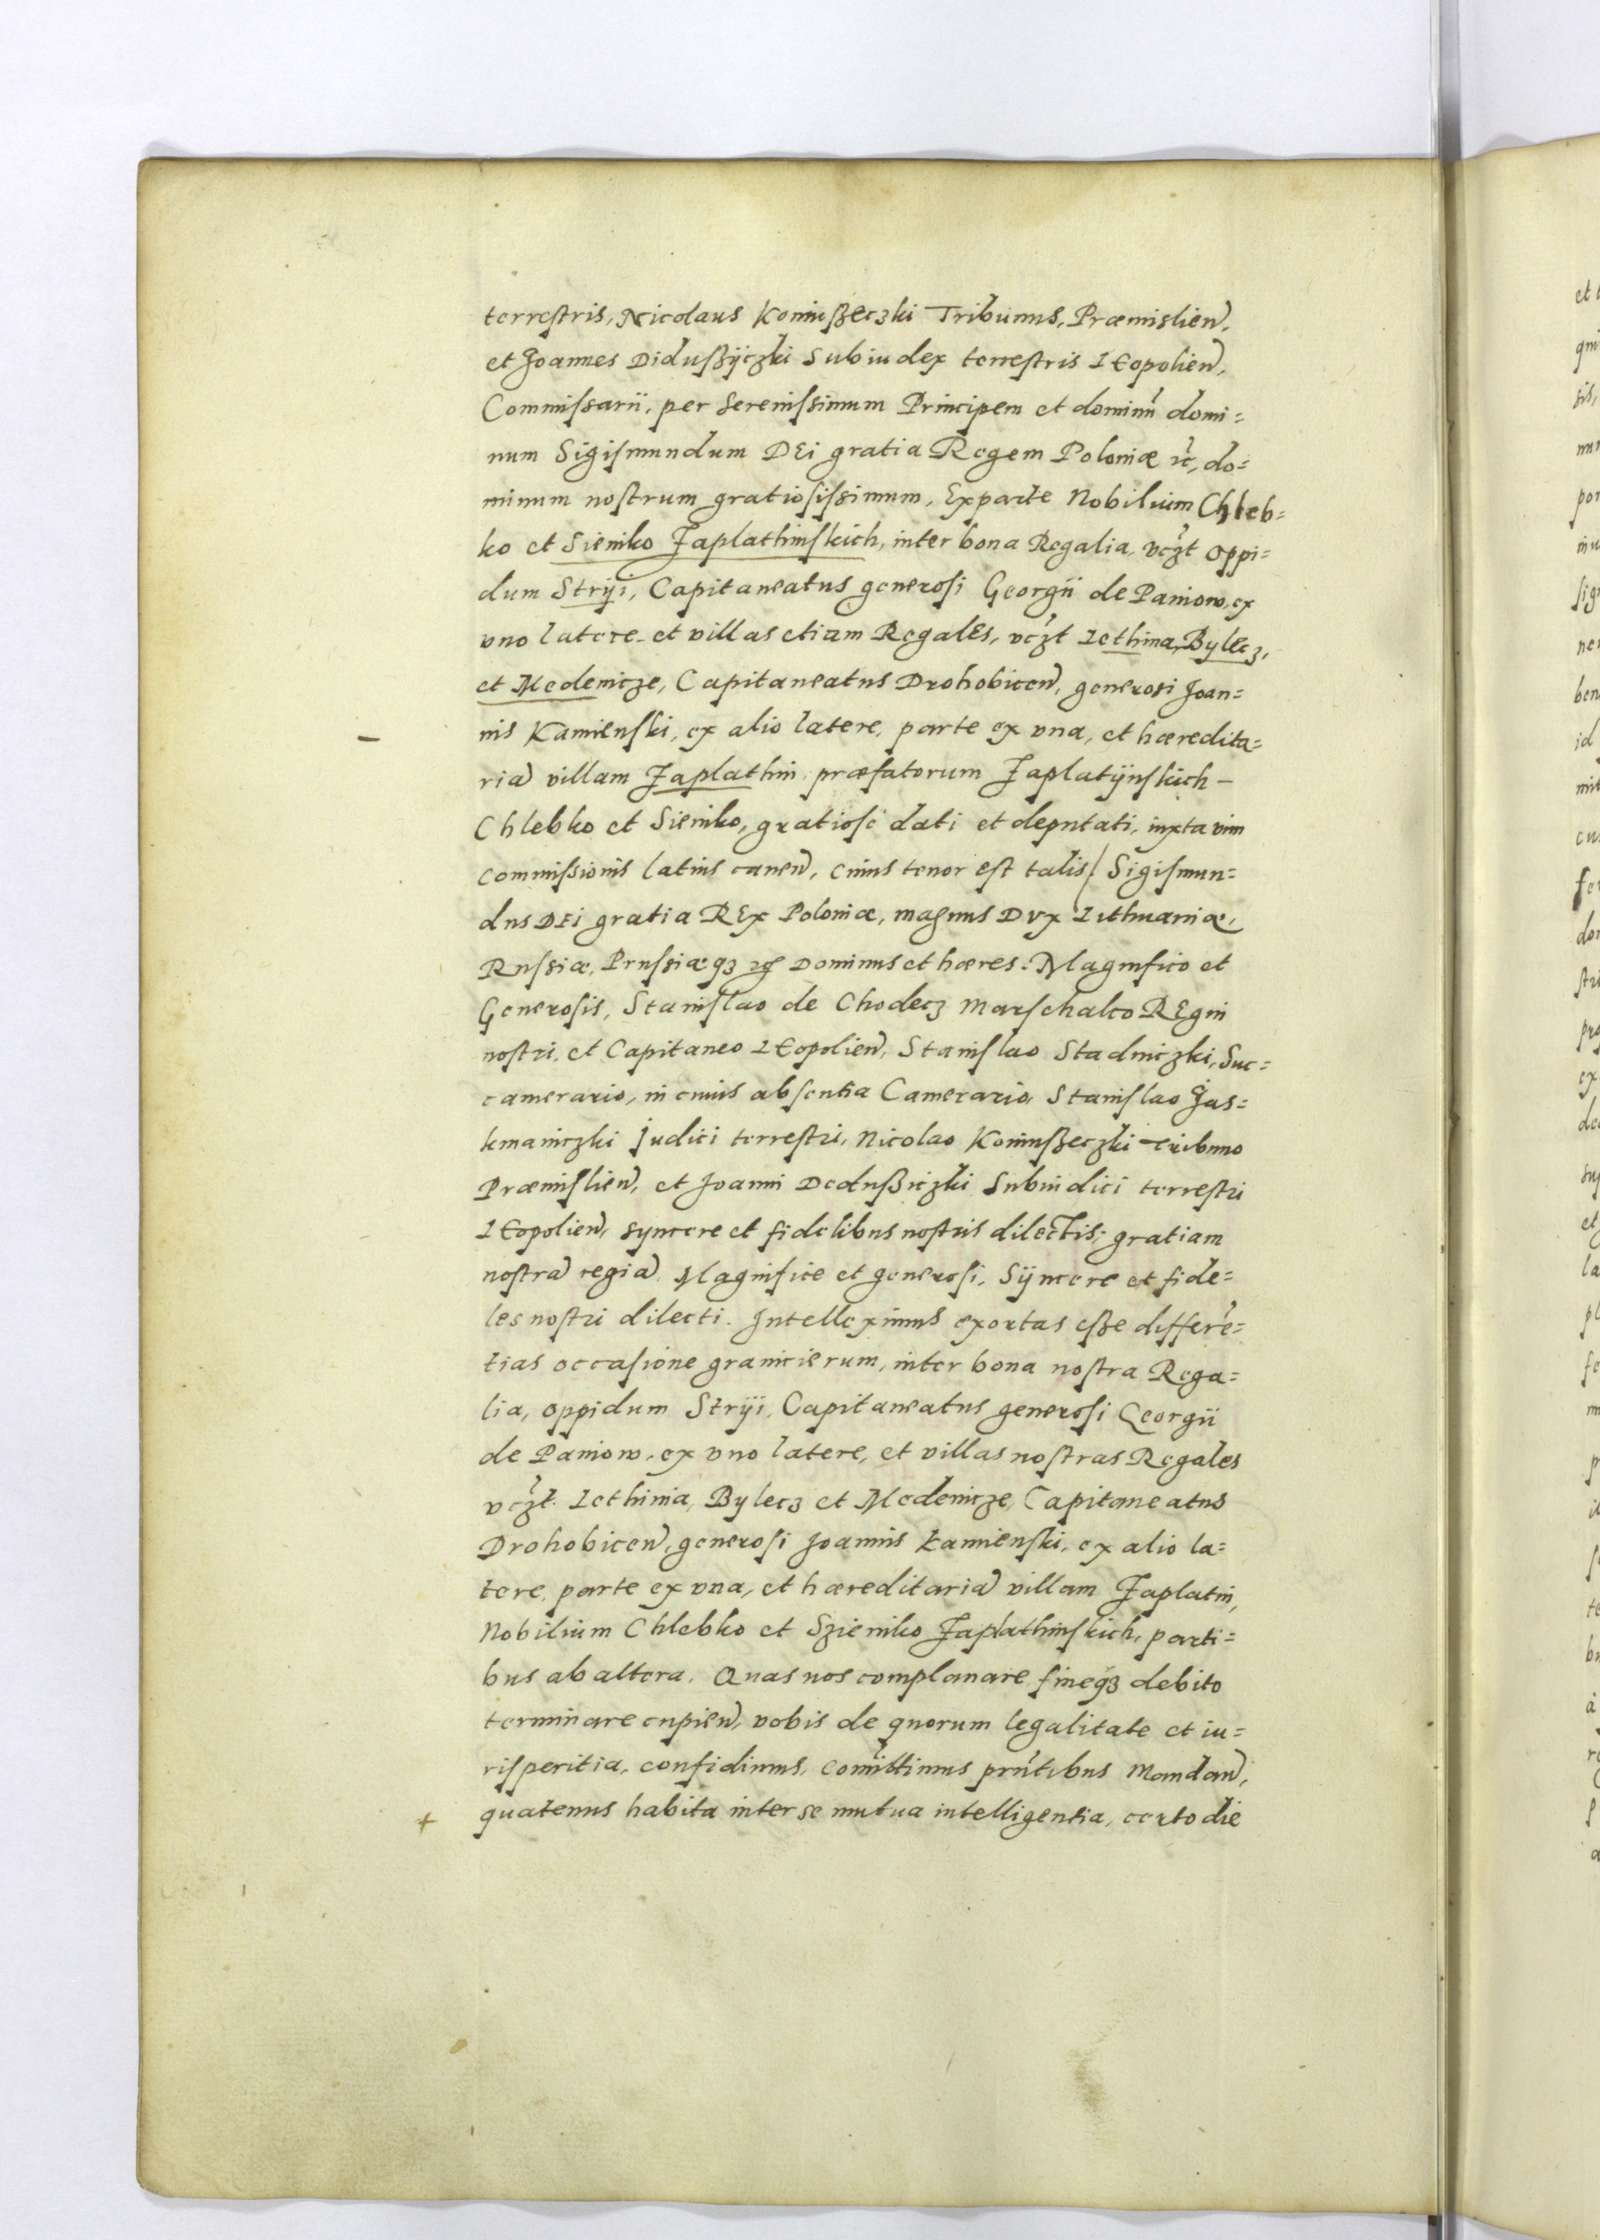 terrestris, Nicolaus Koniußeczki Tribunus, Præmislien,
et Joannes Didußÿczki Subiudex terrestris LEopolien,
Commissarii, per Serenissimum Principem et dominū domi=
num Sigismundum DEi gratia Regem Poloniæ ꝛc, do=
minum nostrum gratiosissimum, Exparte Nobilium Chleb=
ko et Sieniko Japlathinskich, inter bona Regalia, vczt oppi=
dum Stryi, Capitaneatus generosi Georgii de Paniow, ex
vno latere et villas etiam Regales, vczt Lethina, Bylecz,
et Medenicze, Capitaneatus Drohobicen, generosi Joan=
nis Kamienski, ex alio latere, parte ex vna, et hæredita=
riā villam Japlathin præfatorum Japlatÿnskich –
Chlebko et Sieniko, gratiose dati et deputati, iuxta vim
commissionis latius canen, cuius tenor est talis / Sigismun=
dus DEi gratia REx Poloniæ, magnus Dvx Lithuaniæ,
Russiæ, Prussiæqꝫ ꝛc Dominus et hæres. Magnifico et
Generosis, Stanislao de Chodecz Marschalco REgni
nostri, et Capitaneo LEopolien, Stanislao Stadniczki, Suc=
camerario, in cuius absentia Camerario, Stanislao Jas=
kmaniczki judici terrestri, Nicolao Koniußeczki Tribuno
Præmislien, et Joanni Dedußiczki Subiudici terrestri
LEopolien, syncere et fidelibus nostris dilectis, gratiam
nostrā regiā. Magnifice et generosi, Sÿncere et fide=
les nostri dilecti. Intelleximus exortas eße differē=
tias occasione granicierum, inter bona nostra Rega=
lia, oppidum Stryi, Capitaneatus generosi Georgii
de Paniow, ex vno latere, et villas nostras Regales
vczt. Lethinia, Bylecz et Medenicze, Capitaneatus
Drohobicen, generosi Joannis Kamienski, ex alio la=
tere, parte ex vna, et hæreditariā villam Japlatin,
Nobilium Chlebko et Szieniko Japlathinskich, parti=
bus ab altera. Quas nos complanare fineqꝫ debito
terminare cupien, vobis de quorum legalitate et iu=
risperitia, confidimus, com̄ittimus prn̄tibus Mandan,
quatenus habita inter se mutua intelligentia, certo die